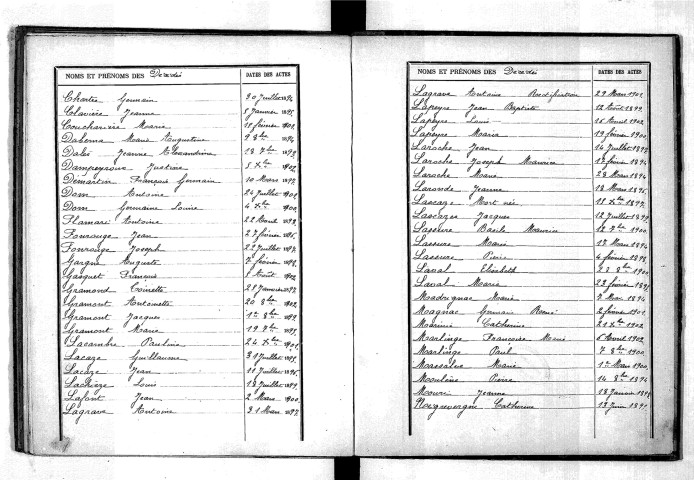 NOMS ET PRÉNOMS DES Décédés DATES DES ACTES
Chartre Germain 30 Juillet 1894
Clavière Jeanne 5 Janvier 1895
Couchavière Marie 18 février 1901
Marie Augustine 9 8bre
Dalès Jeanne Alexandrine 28 7bre 1893
Dampeyroux Justine 5 Xbre 1902
Demartin François Germain 10 Mars 1897
Dom Antoine 24 Juillet 1901
Dom Germaine Louise 4 Xbre 1901
Flamari Antoine 22 Aout 1899
Fourouge Jean 27 février
Fonrouge Joseph 22 Juillet 1897
Gargne Auguste 7 février
Gasquet François Aout 1902
Gramond Toinette 28 Janvier 1897
Gramont Antoinette 20 8bre 1902
Gramont Jacques 1er 8bre 1899
Gramont Marie 19 7bre 1895
Lacambre Pauline 24 Xbre 1901
Lacaze Guillaume 31 Juillet 1895
Lacaze Jean 11 Juillet
Lachièze Louis 18 Juillet 1899
Lafont Jean 2 Mars 1900
Lagrave Antoine 31 Mars 1897
NOMS ET PRÉNOMS DES Décédés DATES DES ACTES
Lagrave Antoine Rectification 29 Mars 1901
Lapeyre Jean Baptiste 12 Aout 1899
Lapeyre Louis 15 Aout 1902
Lapeyre Maria 19 février 1900
Laroche Jean 14 Juillet 1893
Laroche Joseph Maurice 12 février 1894
Laroche Marie 28 Mars 1894
Laronde Jeanne 18 Mars 1895
Lascaze Mort né 18 Xbre 1897
Lascazes Jacques 12 Juillet 1899
Lasserre Basile Maurice 12 7bre 1900
Lasserre Marie 17 Mars 1894
Lasserre Pierre 4 février 1898
Laval Elisabeth 23 8bre 1900
Laval Marie 23 février 1895
Madrignac Marie 7 Mai 1894
Magnac Germain René 2 février 1901
Catherine 21 Xbre 1902
Marlinge Françoise Marie 6 Avril 1902
Marlinge Paul 7 8bre 1900
Massalve Marie 1er Mars 1900
Moulène Pierre 14 8bre 1894
Jeanne 18 Janvier
Naigrevergne Catherine 13 Juin 1895